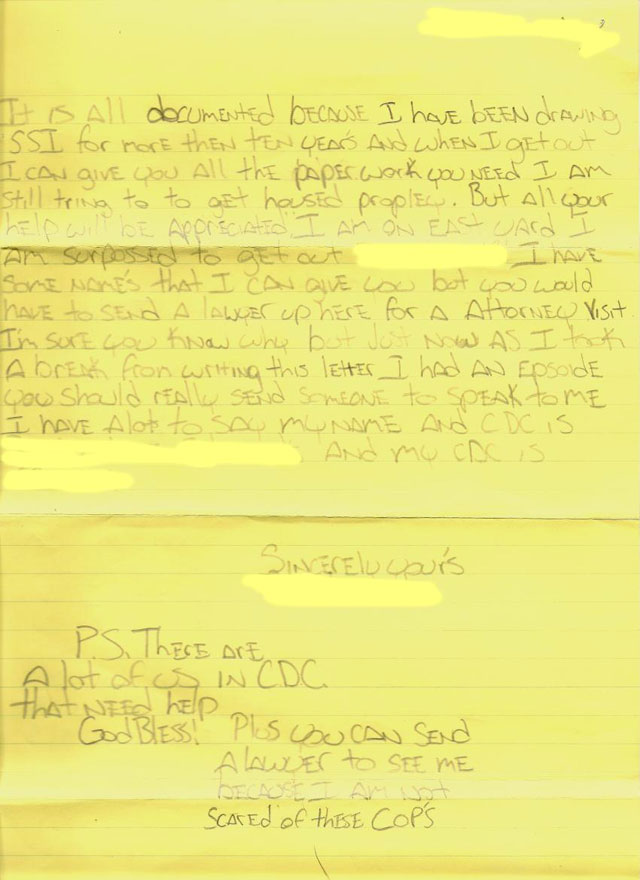 It is all documented because I have been drawing
SSI for more then ten year's and when I get out
I can give you all the paper work you need I am
still tring to to get housed propley. But all your
help will be appreciated. I am on East Yard I
am surpossed to get out I have
some name's that I can give you but you would
have to send a lawyer up here for a Attorney Visit
I'm sure you know why but just now as I took
a break from writing this letter I had an Epsoide
you should really send someone to speak to me
I have alot to say my name and CDC is
and my CDC is
Sincerely your's
P.S. There are
A lot of us in CDC
that need help
God Bless! Plus you can send
a lawyer to see me
because I am not
scared of these Cop's